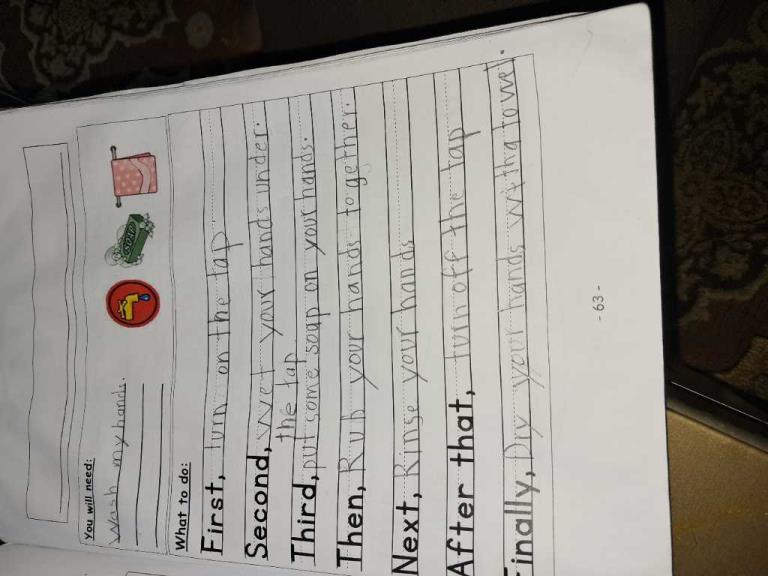 You will need:
Wash my hands.
SOAP
What to do:
First, turn on the tap
Second, wet your hands under.
the tap
Third, put some soap on your hands.
Then, Rub your hands together.
Next, Rinse your hands
After that, turn off the tap
Finally, Dry your hands with a towel.
- 63 -